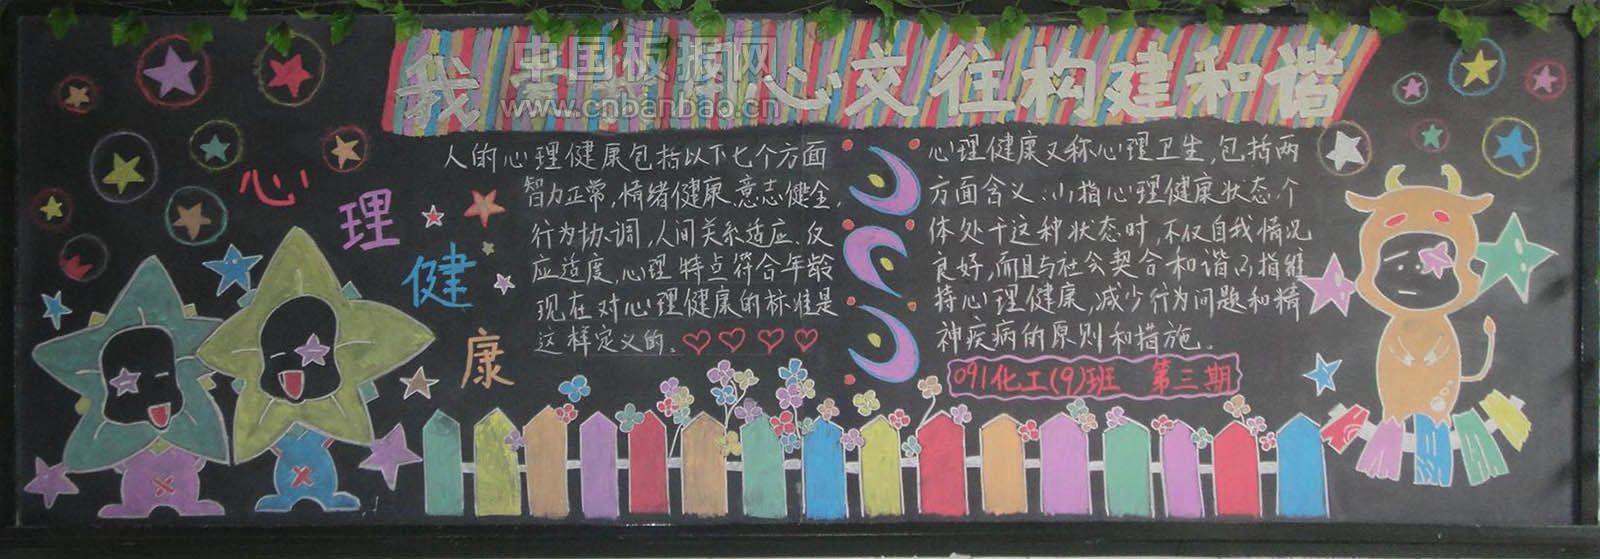 中国板报网
www.cnbanbao.cn
我 用心交往构建和谐
心理健康
人的心理健康包括以下七个方面
智力正常,情绪健康,意志健全,
行为协调,人间关系适应、仅
应适度,心理特点符合年龄
现在对心理健康的标准是
这样定义的。
心理健康又称心理卫生,包括两
方面含义:小指心理健康状态个
体处于这种状态时,不仅自我情况
良好,而且与社会契合和谐 指维
持心理健康,减少行为问题和精
神疾病的原则和措施。
091化工(9)班 第三期